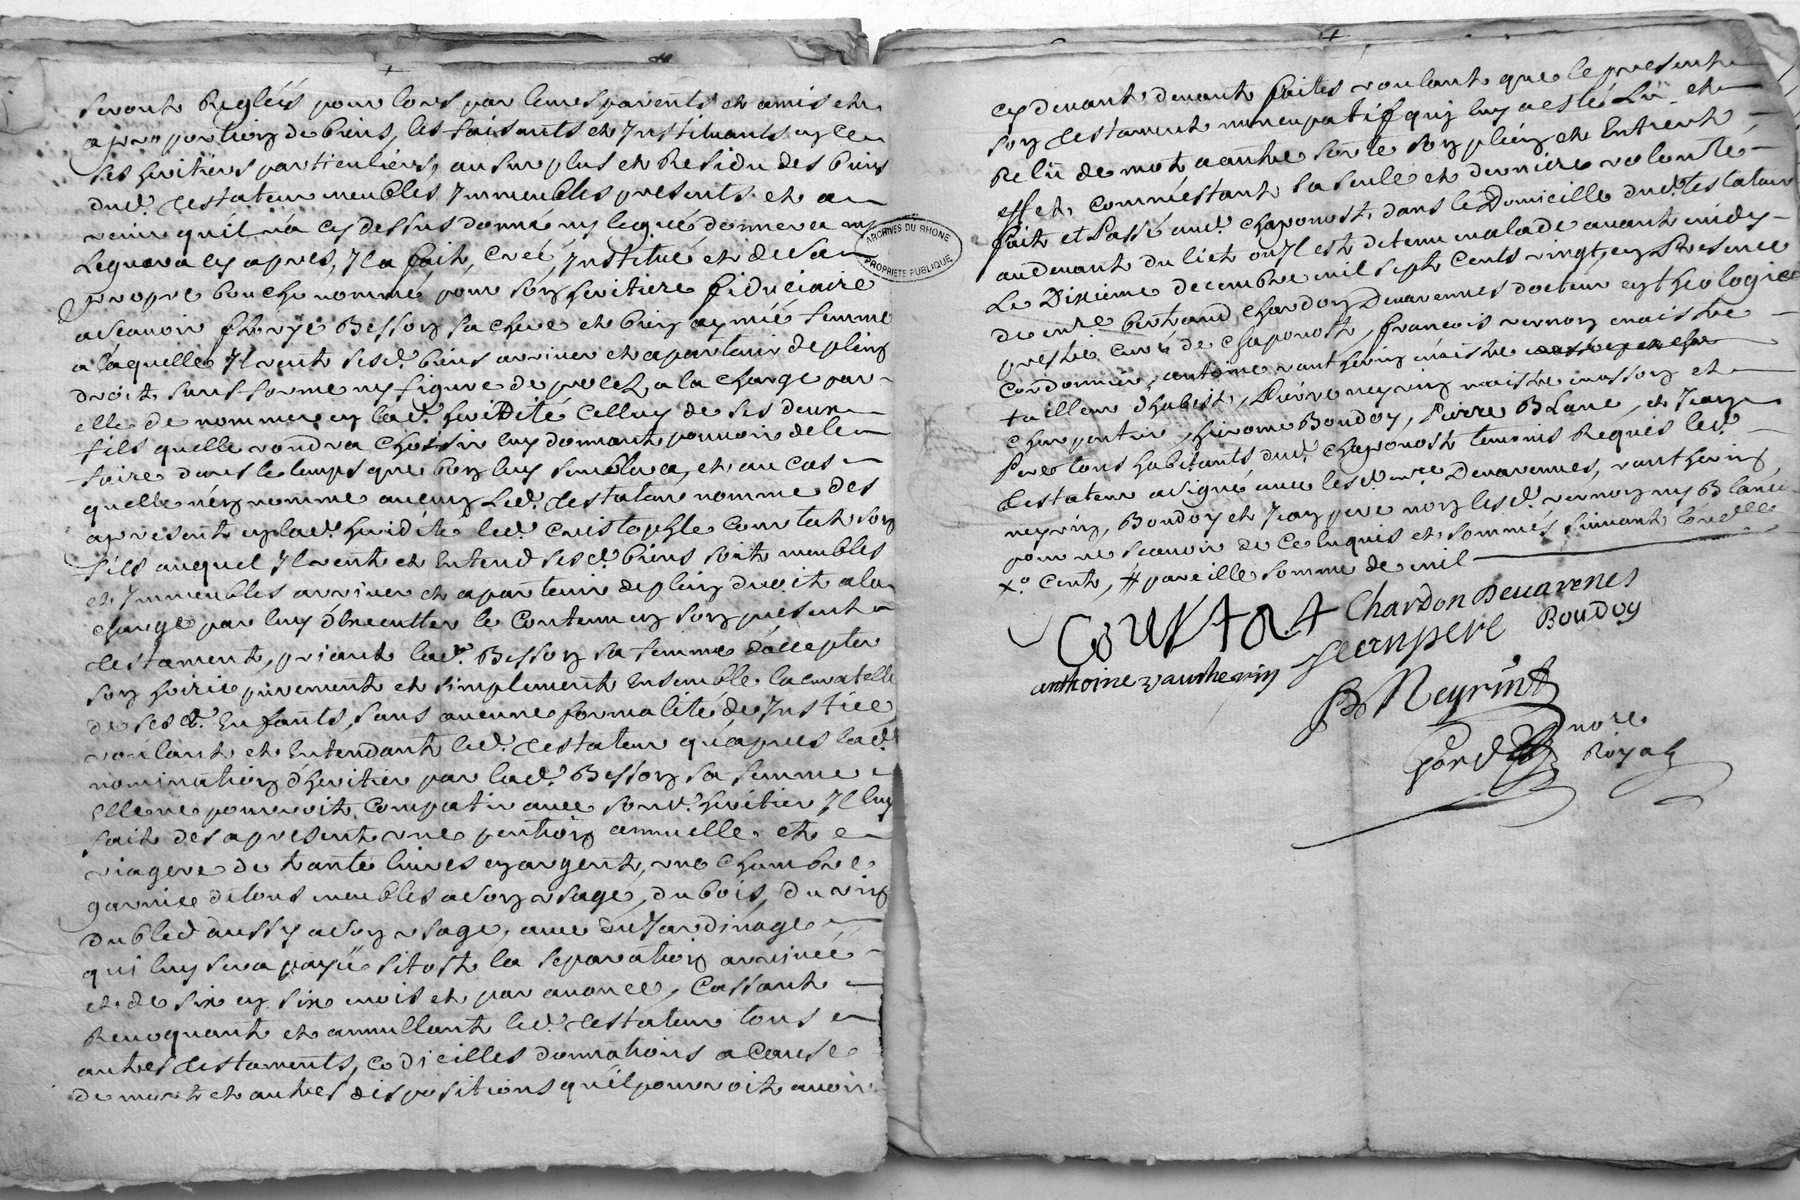 seront Reglées pour lors par leurs parents et amis et
a proportion de biens, les faisants et Instituants en ce
ses heritiers particuliers, au surplus et Residu des biens
dud. testateur meubles Immeubles presents et a
venir qu'il n'a cy dessus donné ny legué donnera ny
Leguera cy apres, Il a fait, creé, Institué et de Sa
propre bouche nommé pour son heritiere fiduciaire
ascavoir Besson sa chere et bien aymée femme
a laquelle Il veut sesd. biens arriver et apartenir de plein
droit sans forme ny figure de procez, a la charge par
elle de nommer en lad. heredité Celluy de ses deux
fils quelle voudra choisir luy donnant pouvoir de le
faire dans le temps que bon luy semblera, et au cas
quelle n'en nomme aucun Led. testateur nomme des
apresent en lad. heredité led. Cristophle Coustat son
fils auquel Il veut et Entend sesd. biens soit meubles
et Immeubles arriver et apartenir de plein droit a la
charge par luy d'Executter le Contenu en son present
testament, priant lad. Besson sa femme d'accepter
son hoirie purement et simplement Ensemble la curatelle
de sesd. Enfants, sans aucune formalité de Justice
voulant et Entendant led. testateur qu'apres lad.
nomination d'heritier par lad. Besson sa femme
Elle ne pourroit compatir avec sond. heritier Il luy
fait des apresent une pention annuelle et
viagere de trante livres en argent, une chambre
garnie de tous meubles a son usage, du bois, du vin
du bled aussy a son usage, avec du Jardinage
qui luy sera payé sitost la separation arrivée
et de six en six mois et par avance, Cassant
Revoquant et annullant led. testateur tous
autres testaments, codicilles donnations a Cause
de mort et autres dispositions qu'il pourroit avoir
cy devant faites voulant que le present
son testament nuncupatif qui luy a esté Lû et
Relû de mot a autre sorte son plein et Entier
effet, comme estant sa seule et derniere volonté
fait et Passé aud. chaponost, dans le Domicille dud. testateur
audevant du lict ou Il est detenu malade avant midy
Le Dixieme decembre mil sept cents vingt, en Presence
de mre. bertrand chardon Devarennes docteur en theologie
prestre curé de chaponost, francois vernon maistre
cordonnier, antoine vautherin maistre
tailleur d'habist, Pierre neyrin maistre masson et
charpentier, hierome Boudoy, Pierre Blanc, et Jean
Pere tous habitants dud. chaponost temoins Requis led.
testateur a signé avec lesd. mre. Devarennes, vautherin,
neyrin, Boudoy et Jean pere non lesd. vernon ny Blanc
pour ne scavoir de ce Enquis et sommés suivant
Cents, # pareille somme de mil
COUSTAT Chardon Devarenes
Jean pere Boudoy
anthoine vautherin
P Neyrin
nore
Royal
ARCHIVES DU RHONE
PROPRIETE PUBLIQUE